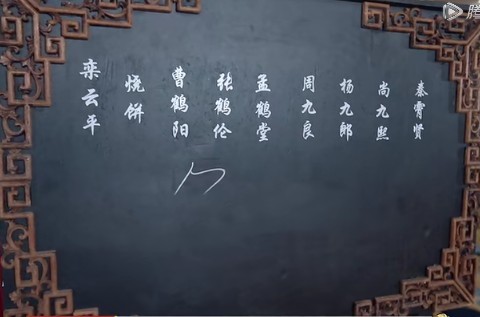 栾云平
烧饼
曹鹤阳
张鹤伦
孟鹤堂
周九良
杨九郎
尚九熙
秦霄贤
腾